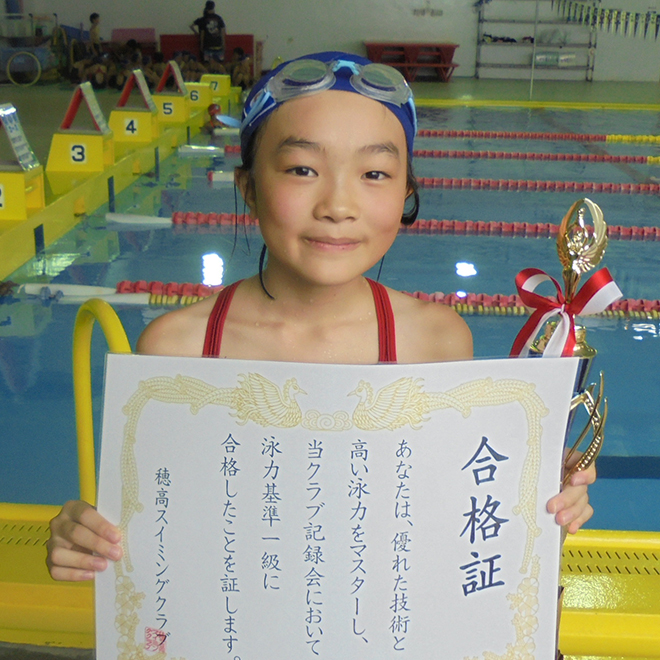 合格証
あなたは、優れた技術と
高い泳力をマスターし、
当クラブ記録会において
泳力基準一級に
合格したことを証します。
穂高スイミングクラブ
2
3
4
5
6
7